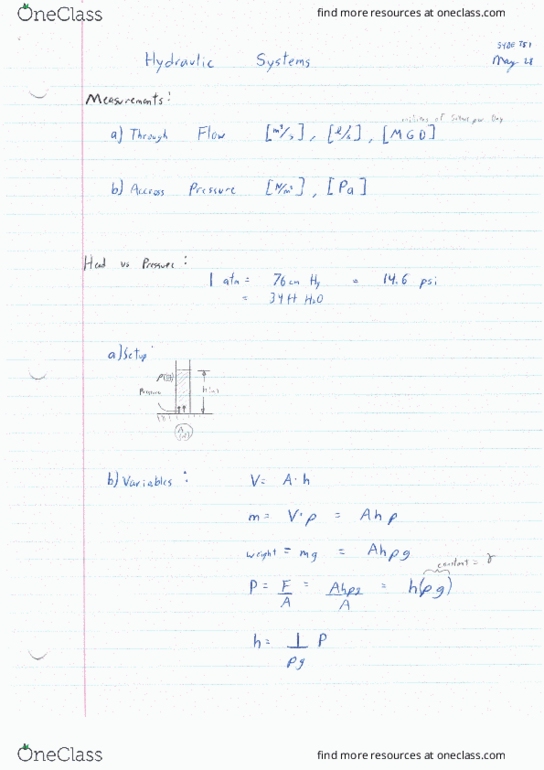 OneClass find more resources at oneclass.com
SYDE 351
May 28
Hydraulic Systems
Measurements:
a) Through Flow [m³/s], [l/s], [MGD]
b) Across Pressure [N/m²], [Pa]
Head vs Pressure:
1 atm = 76cm Hg = 14.6 psi
= 34 ft H2O
a) Setup
Pressure
b) Variables:
V = A·h
m = V·ρ = Ahρ
weight = mg = Ahρg
constant = γ
P = F/A = Ahρg/A = h(ρg)
h = 1/ρg P
OneClass find more resources at oneclass.com